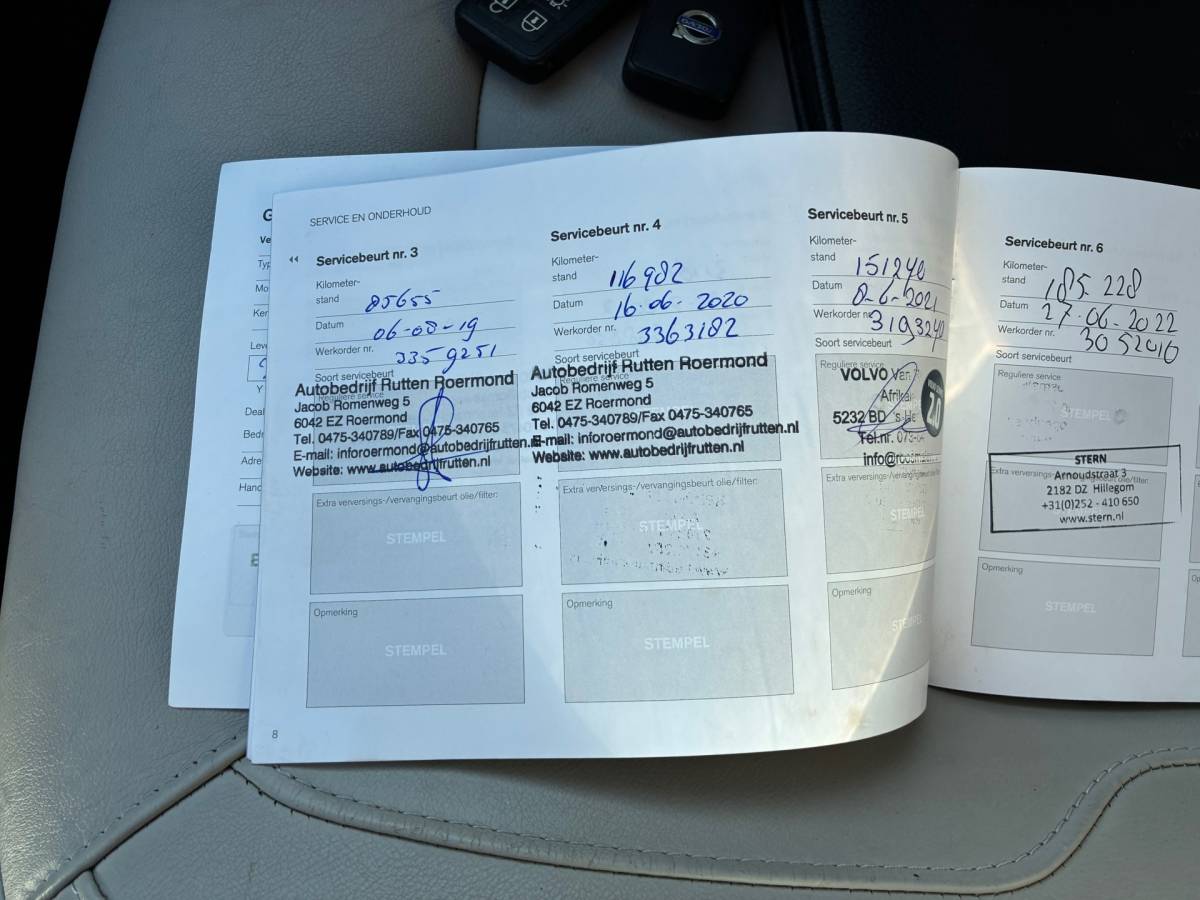 SERVICE EN ONDERHOUD
Servicebeurt nr. 3
Kilometer-
stand 85655
Datum 06-08-19
Werkorder nr. 3359251
Soort servicebeurt
Reguliere service
Autobedrijf Rutten Roermond
Jacob Romenweg 5
6042 EZ Roermond
Tel. 0475-340789/Fax 0475-340765
E-mail: inforoermond@autobedrijfrutten.nl
Website: www.autobedrijfrutten.nl
Extra verversings-/vervangingsbeurt olie/filter:
STEMPEL
Opmerking
STEMPEL
8
Servicebeurt nr. 4
Kilometer-
stand 116982
Datum 16-06-2020
Werkorder nr. 3363182
Soort servicebeurt
Reguliere service
Autobedrijf Rutten Roermond
Jacob Romenweg 5
6042 EZ Roermond
Tel. 0475-340789/Fax 0475-340765
E-mail: inforoermond@autobedrijfrutten.nl
Website: www.autobedrijfrutten.nl
Extra verversings-/vervangingsbeurt olie/filter:
STEMPEL
Opmerking
STEMPEL
Servicebeurt nr. 5
Kilometer-
stand 151240
Datum 8-6-2021
Werkorder nr. 3193240
Soort servicebeurt
Reguliere service
VOLVO Van
Afrika
5232 BD 's-He
Tel.nr. 073-
Extra verversings-/vervan
Opmerking
Servicebeurt nr. 6
Kilometer-
stand 185 228
Datum 27-06-2022
Werkorder nr. 3052016
Soort servicebeurt
Reguliere service
STEMPEL
STERN
Arnoudstraat 3
2182 DZ Hillegom
+31(0)252 - 410 650
www.stern.nl
Opmerking
STEMPEL